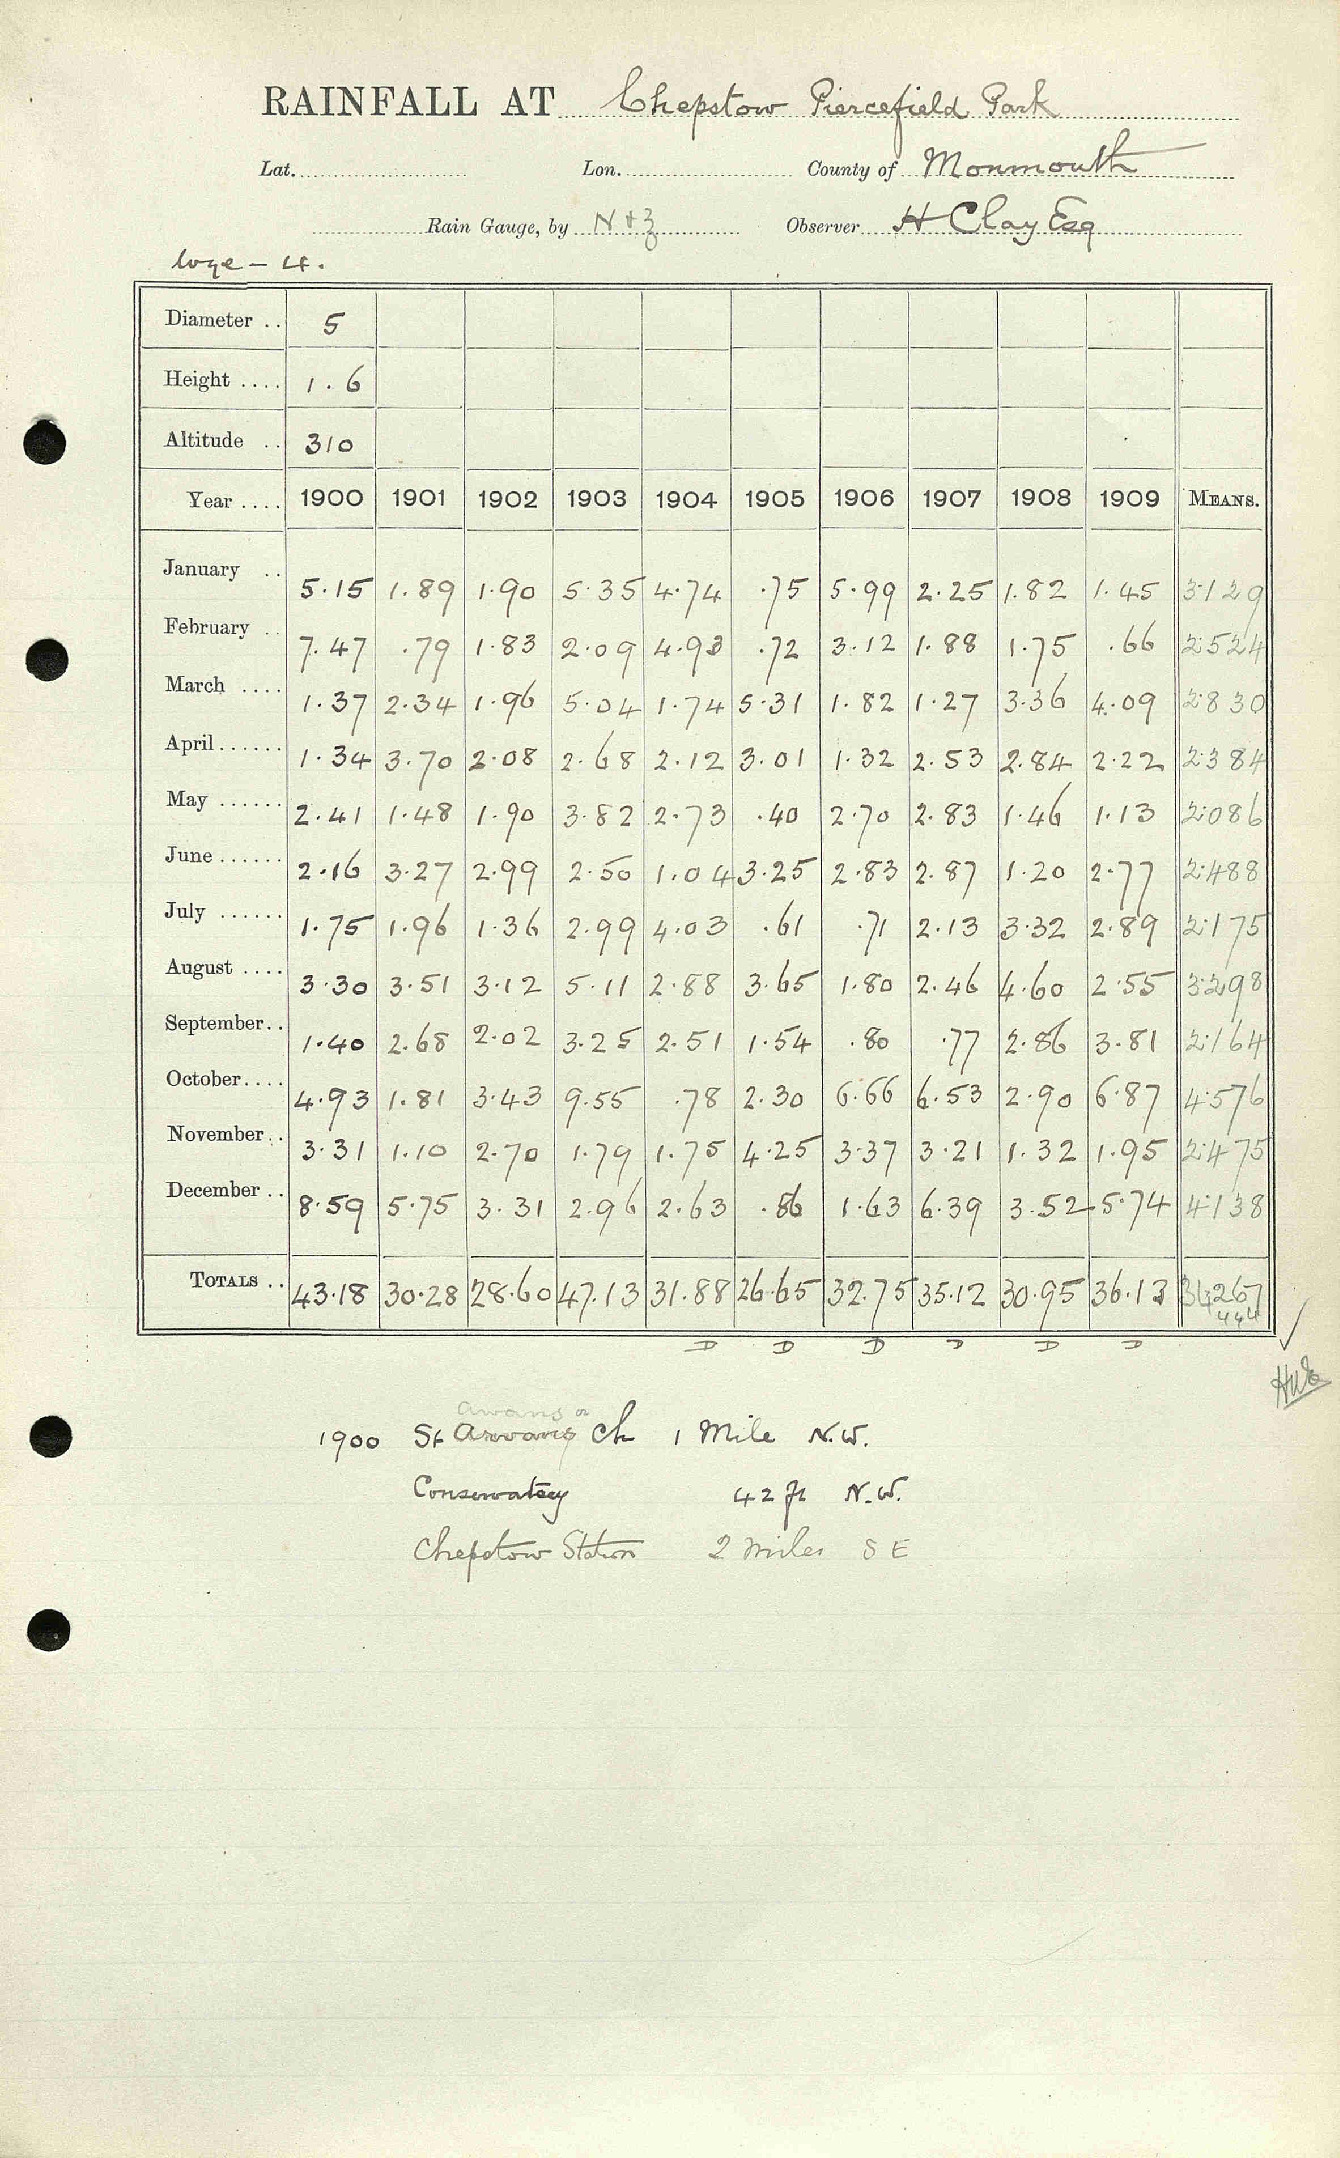 RAINFALL AT Chepstow Piercefield Park
Lat. Lon. County of Monmouth
Rain Gauge, by N + Z Observer H Clay Esq
Wye - 4.
Diameter .. 5
Height .... 1.6
Altitude .. 310
Year .... 1900 1901 1902 1903 1904 1905 1906 1907 1908 1909 MEANS.
January .. 5.15 1.89 1.90 5.35 4.74 .75 5.99 2.25 1.82 1.45 3.129
February .. 7.47 .79 1.83 2.09 4.93 .72 3.12 1.88 1.75 .66 2.524
March .... 1.37 2.34 1.96 5.04 1.74 5.31 1.82 1.27 3.36 4.09 2.830
April...... 1.34 3.70 2.08 2.68 2.12 3.01 1.32 2.53 2.84 2.22 2.384
May ...... 2.41 1.48 1.90 3.82 2.73 .40 2.70 2.83 1.46 1.13 2.086
June ...... 2.16 3.27 2.99 2.50 1.04 3.25 2.83 2.87 1.20 2.77 2.488
July ...... 1.75 1.96 1.36 2.99 4.03 .61 .71 2.13 3.32 2.89 2.175
August .... 3.30 3.51 3.12 5.11 2.88 3.65 1.80 2.46 4.60 2.55 3.298
September.. 1.40 2.68 2.02 3.25 2.51 1.54 .80 .77 2.86 3.81 2.164
October.... 4.93 1.81 3.43 9.55 .78 2.30 6.66 6.53 2.90 6.87 4.576
November.. 3.31 1.10 2.70 1.79 1.75 4.25 3.37 3.21 1.32 1.95 2.475
December .. 8.59 5.75 3.31 2.96 2.63 .86 1.63 6.39 3.52 5.74 4.138
TOTALS .. 43.18 30.28 28.60 47.13 31.88 26.65 32.75 35.12 30.95 36.13 34.267
D D D D D D
1900 St Arvans Ch 1 Mile N.W.
Conservatory 42 ft N.W.
Chepstow Station 2 miles S E